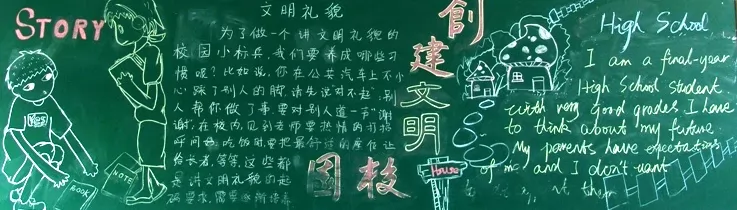 STORY
文明礼貌
为了做一个讲文明礼貌的
校园小标兵,我们要养成哪些习
惯呢?比如说,你在公共汽车上不小
心踩了别人的脚,请先说对不起,别
人帮你做了事,要对别人道一声"谢
谢,在校内,见到老师要热情的打招
呼问好,吃饭时要把最舒适的座位让
给长者,等等,这些都
是讲文明礼貌的起
码要求,需要逐渐培养
Yes
NOTE
BOOK
創建文明
園校
House
High School
I am a final-year
High School student
with very good grades I have
to think about my future.
My parents have expectations
of me and I don't want
them